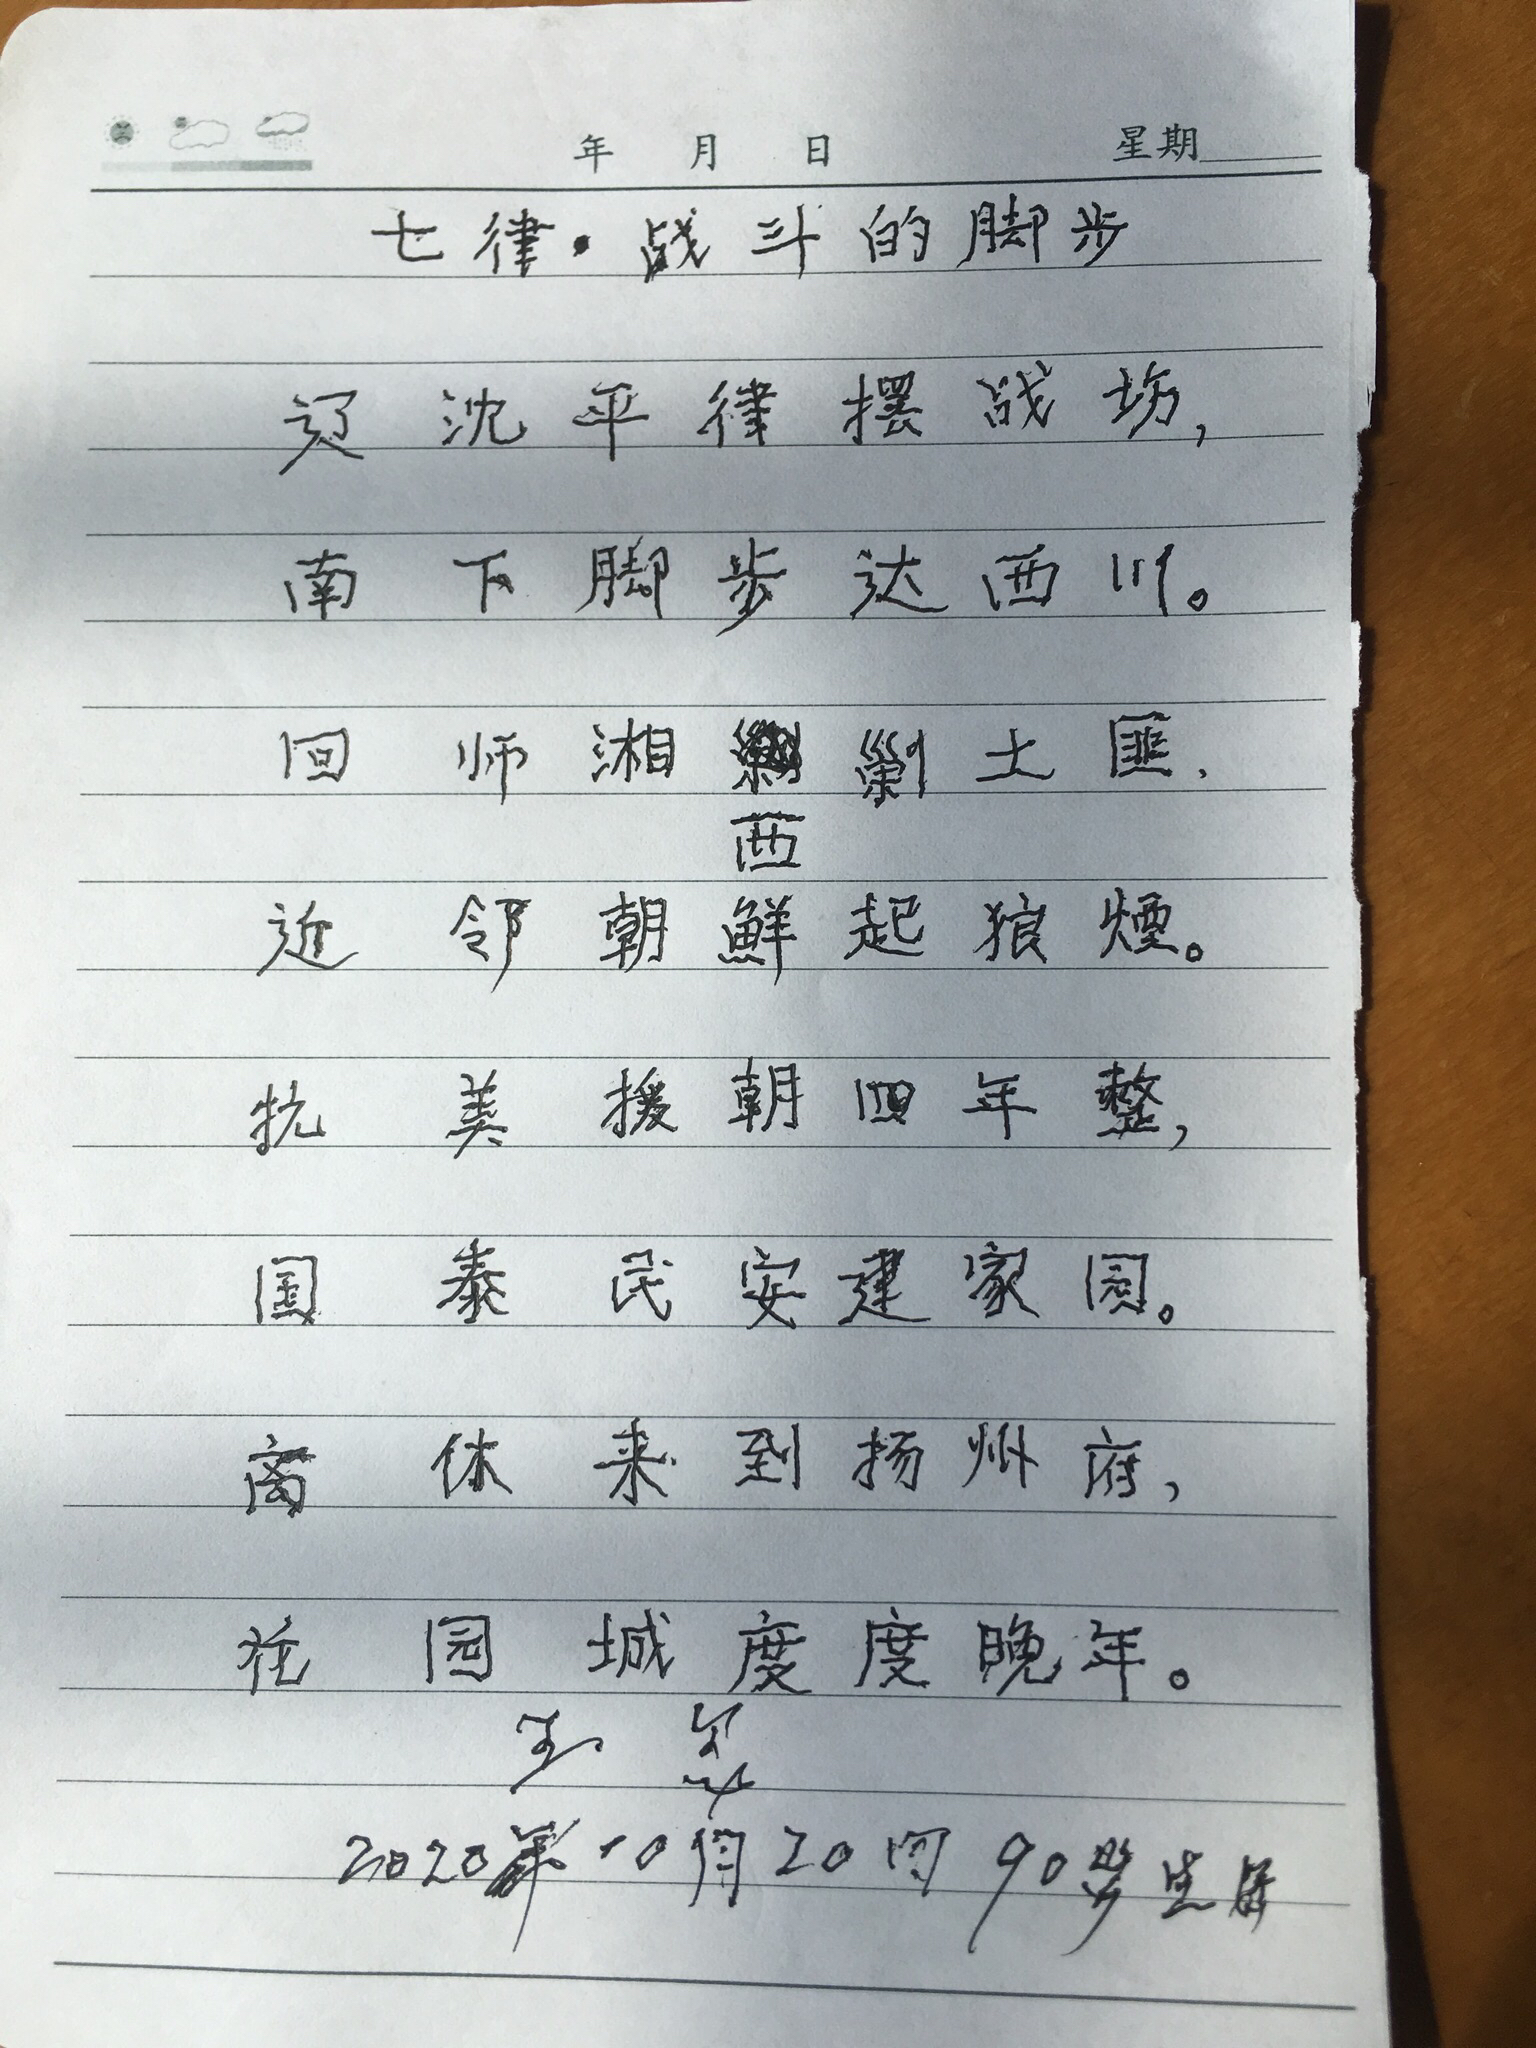 年 月 日 星期
七律·战斗的脚步
辽沈平律摆战场,
南下脚步达西川。
回师湘西剿土匪,
近邻朝鲜起狼煙。
抗美援朝四年整,
国泰民安建家园。
离休来到扬州府,
花园城度度晚年。
2020年10月20日 90岁生日